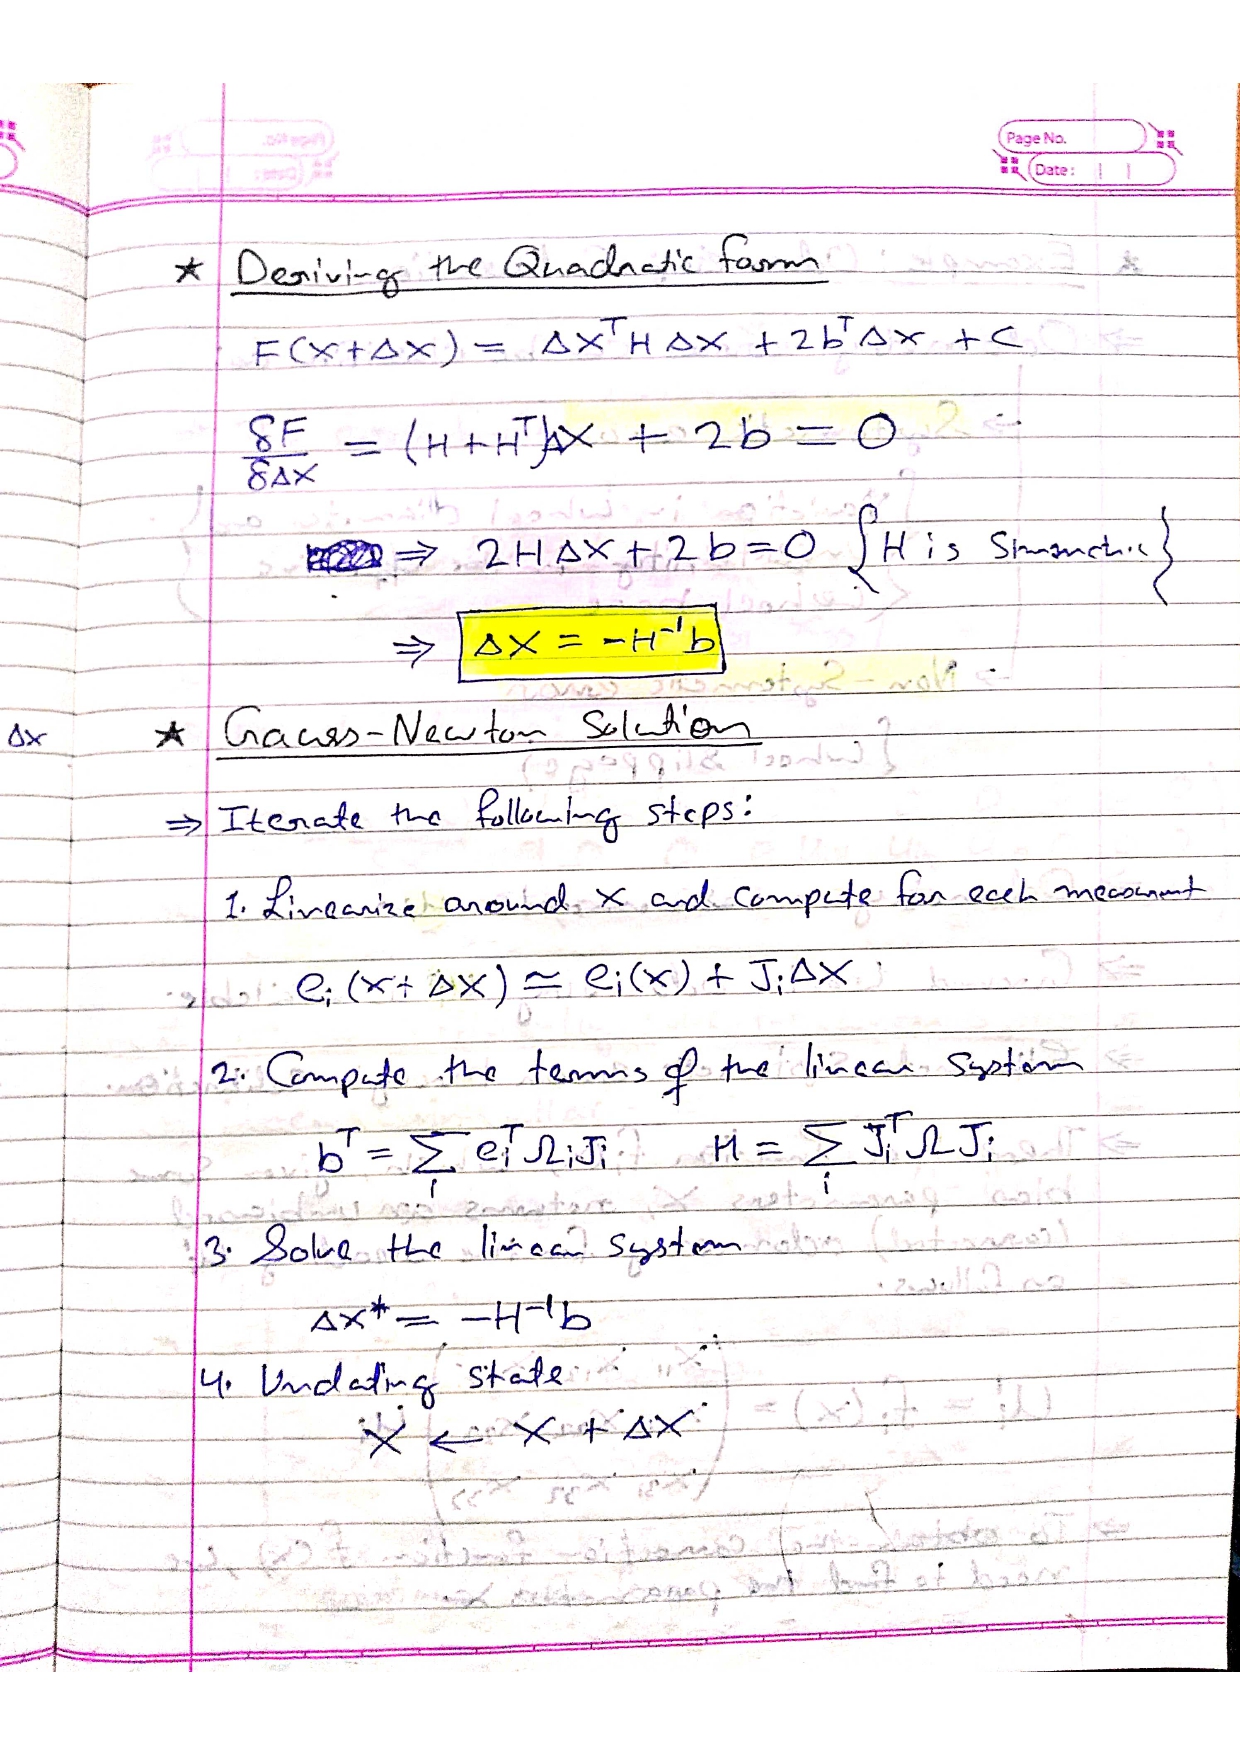 Page No.
Date :
★ Deriving the Quadratic form
F(x+Δx) = Δx^T H Δx + 2b^T Δx + C
δF/δΔx = (H+H^T)Δx + 2b = 0
⇒ 2HΔx + 2b = 0 {H is Simmetric}
⇒ Δx = -H^-1 b
Δx
★ Gauss-Newton Solution
⇒ Iterate the following steps:
1. Linearize around x and compute for each measurment
e_i(x+Δx) ≃ e_i(x) + J_i Δx
2. Compute the terms of the linear system
b^T = Σ_i e_i^T Ω_i J_i H = Σ_i J_i^T Ω J_i
3. Solve the linear system
Δx* = -H^-1 b
4. Updating state
x ← x + Δx